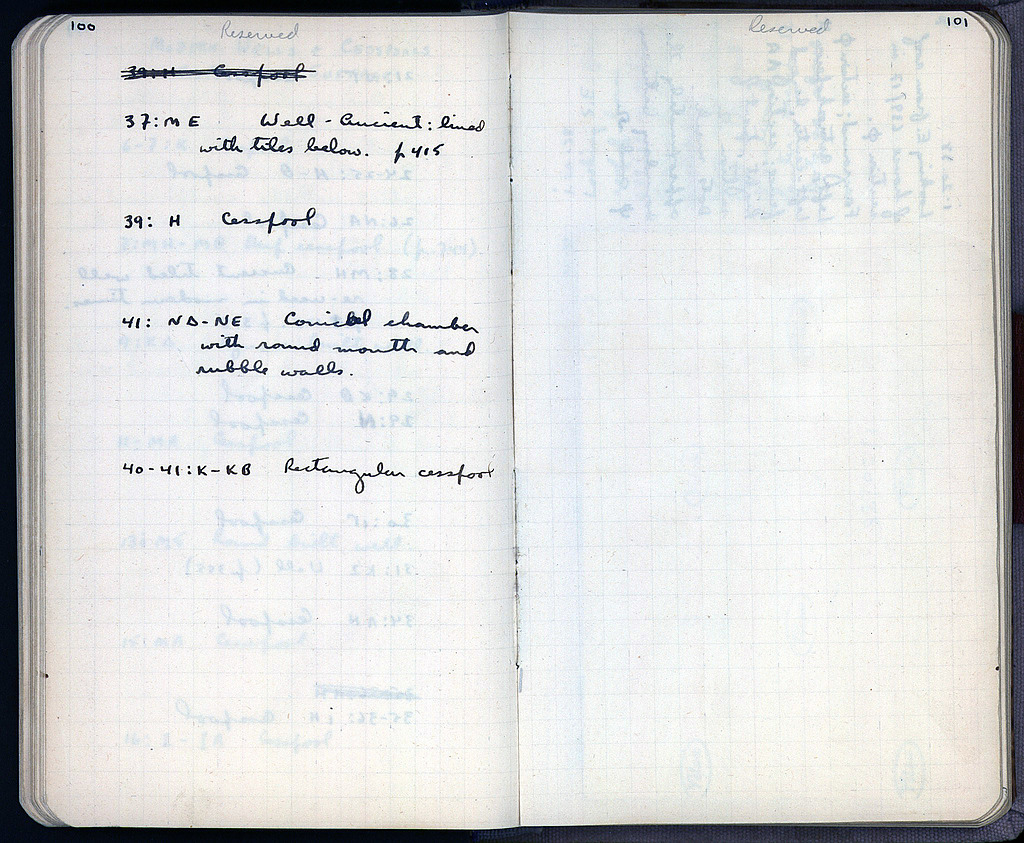 100
Reserved
39:H Cesspool
37:ME Well - Ancient: lined
with tiles below. p 415
39: H Cesspool
41: ND-NE Conical chamber
with round mouth and
rubble walls.
40-41:K-KB Rectangular cesspool
101
Reserved